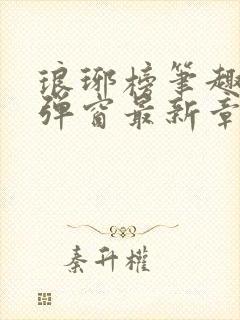 琅琊榜笔趣
弹窗最新章
秦升权